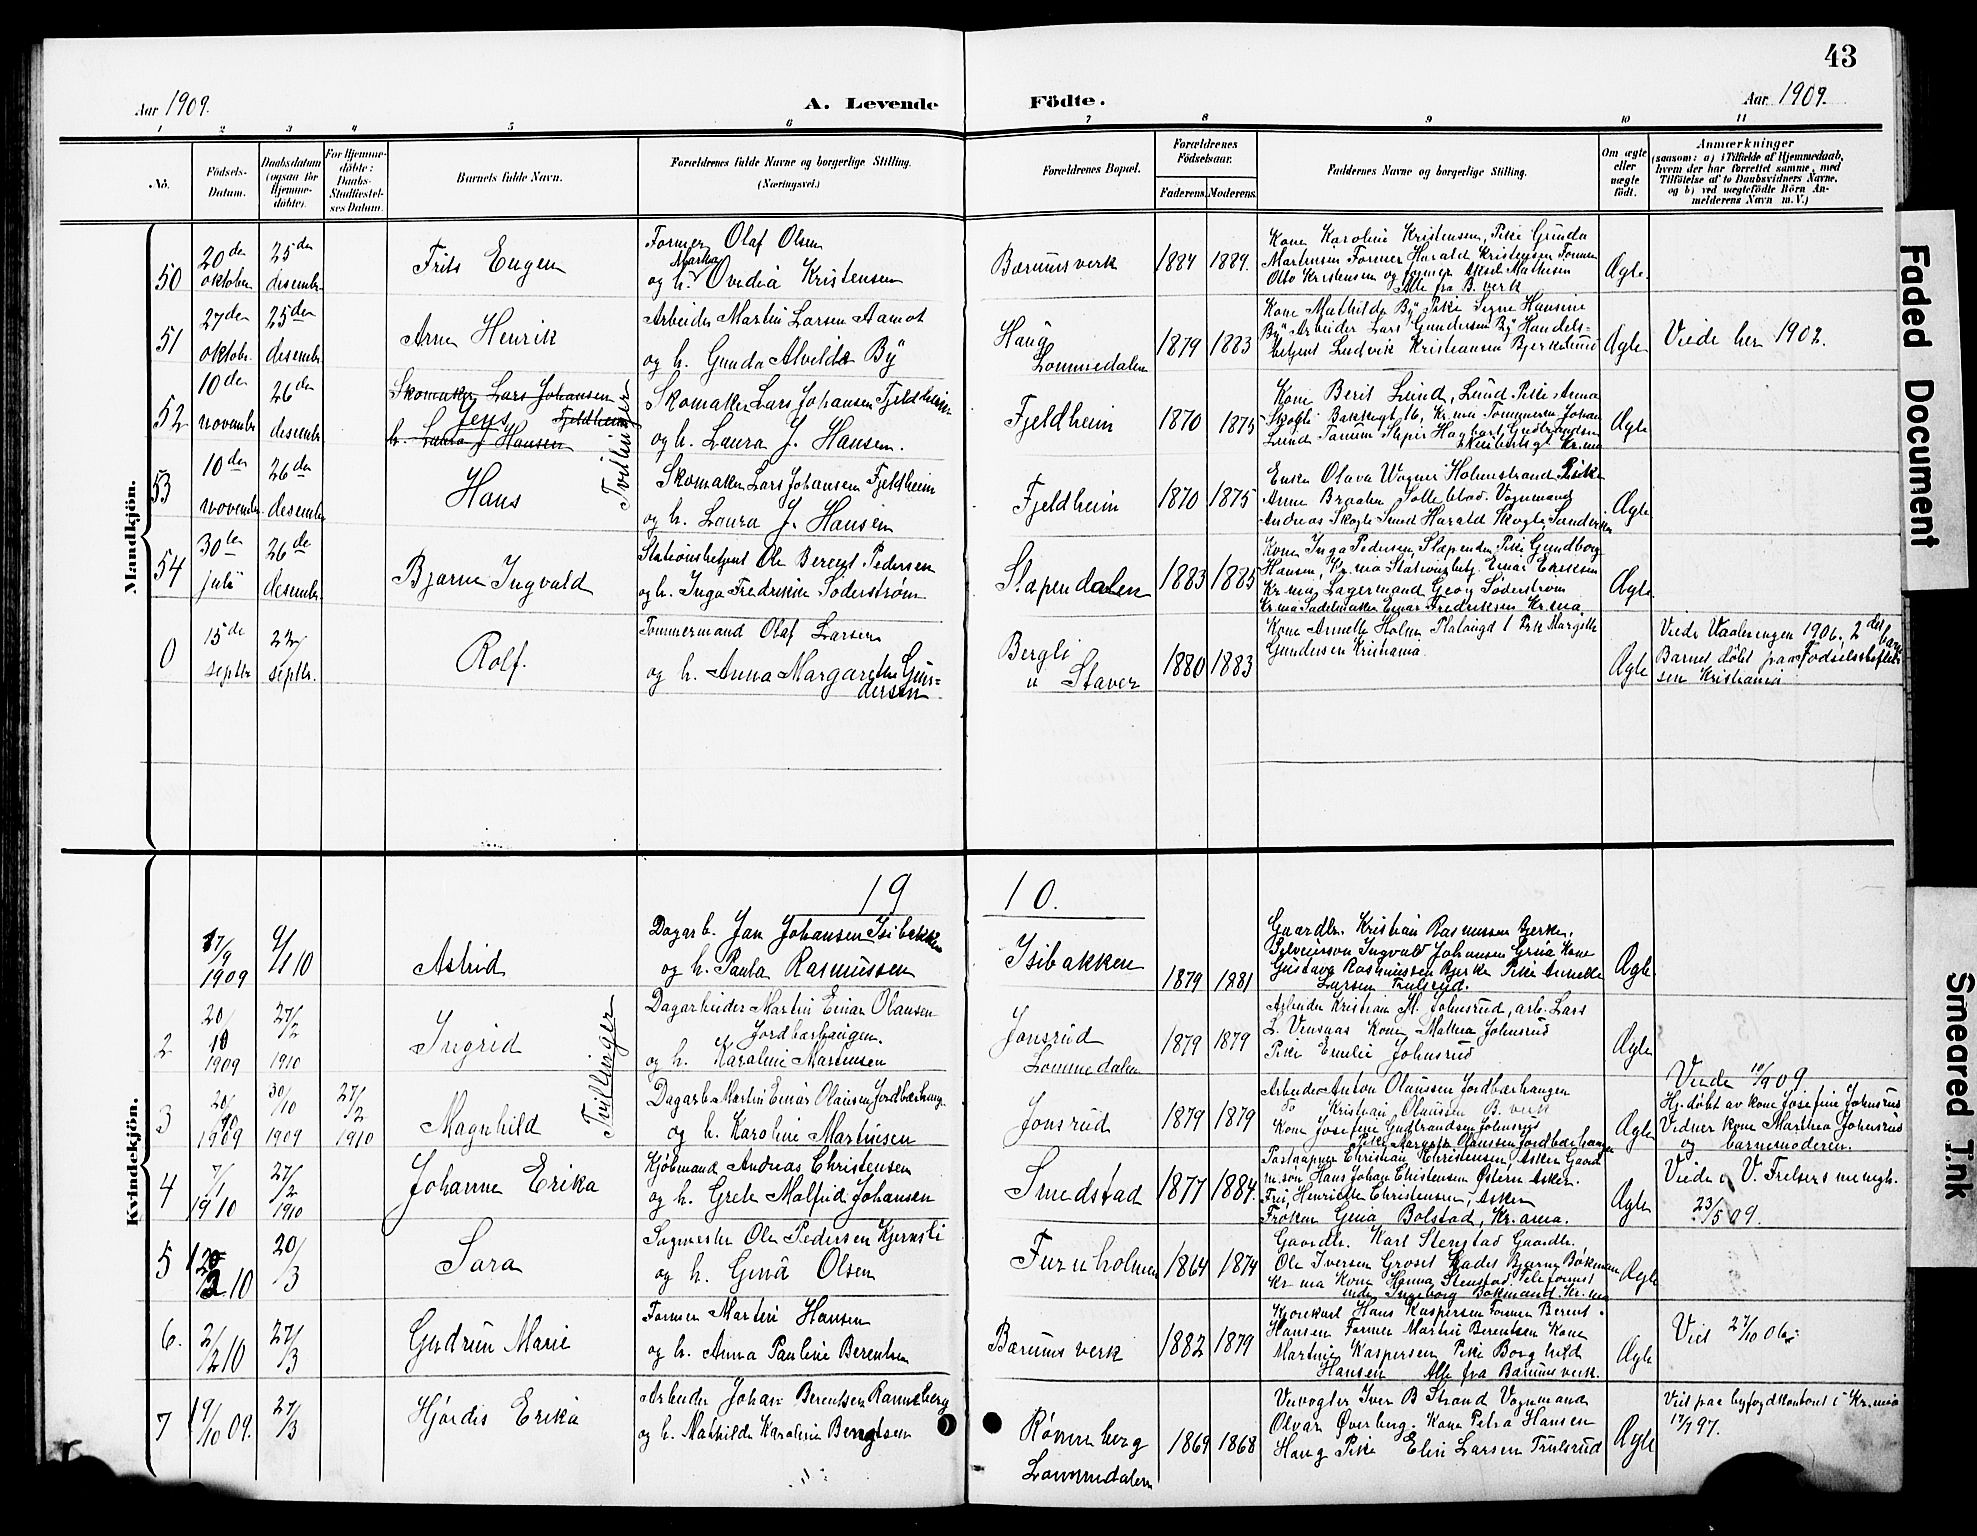 43
Aar 1909.
A. Levende Födte.
Aar 1909.
1 2 3 4 5 6 7 8 9 10 11
No.
Födsels-
Datum.
Daabsdatum
(ogsaa for
Hjemme-
döbte).
For Hjemme-
döbte:
Daabs-
Stadfæstel-
ses Datum.
Barnets fulde Navn.
Forældrenes fulde Navne og borgerlige Stilling.
(Næringsvei.)
Forældrenes Bopæl.
Forældrenes
Födselsaar.
Faderens. Moderens.
Faddernes Navne og borgerlige Stilling.
Om ægte
eller
uægte
födt.
Anmærkninger
(saasom: a) i Tilfælde af Hjemmedaab,
hvem der har forrettet samme, med
Tilföielse af to Daabsvidners Navne,
og b) ved uægtefödte Börn An-
melderens Navn m. V.)
Mandkjön.
50
20de
oktober
25de
desember
Frits Eugen
Former Olaf Olsen
Martha
og h. Ovedia Kristensen
Bærumsverk
1884 1889.
Kone Karoline Kristensen, Pike Gunda
Martinsen Former Harald Kristensen Former
Otto Kristensen og former Aksel Mathisen
Alle fra B. verk
Ægte
51
27de
oktobr.
25de
desembr
Arne Henrik
Arbeider Martin Larsen Aamot
og h. Gunda Alvilde By
Haug
Lommedalen
1879 1883
Kone Mathilde By Pike Signe Hansine
By Arbeider Lars Gundersen By Handels-
betjent Ludvik Kristiansen Bjerkelund
Ægte
Viede her 1902.
52
10de
november
26de
desembr
Skomaker Lars Johansen
Jens Fjeldheim
h. Laura J Hansen
Tvillinger
Skomaker Lars Johansen Fjeldheim
og h. Laura J. Hansen.
Fjeldheim
1870 1875
Kone Berit Lund, Lund Pike Anna
Skogli Bakkegt. 16, Kr.nia Tømmerm Johan
Lund Tanum
Ægte
53
10de
november.
26de
desember
Hans
Skomaker Lars Johansen Fjeldheim
og h. Laura J. Hansen
Fjeldheim
1870 1875
Enke Olava Wagner Holmstrand Pike
Anne Braaten Solleblad. Vognmand
Andreas Skogli Lund Harald Skogli, Sandviken
Ægte
54
30te
juli
26de
desembr.
Bjarne Ingvald
Stationsbetjent Ole Berent Pedersen
og h. Inga Fredrikke Söderström
Slæpendalen
1883 1885
Kone Inga Pedersen, Slæpenden, Pike Gundborg
Hansen, Kr.nia Stationsbetj. Einar Eriksen
Kr.nia, Lagermand Georg Söderström
Kr.nia Sadelmaker Einar Fredriksen Kr.nia.
Ægte
0
15de
septbr
22/
septbr.
Rolf.
Tømmermand Olaf Larsen
og h. Anna Margarethe Gun-
dersen
Bergli
u Staver
1880 1883
Kone Annette Holm, Platougd 1 Pike Margithe
Gundersen Kristiania.
Ægte
Viede Vaaleringen 1906. 2det barn
Barnet döbt paa Födselsstiftel-
sen Kristiania
Kvindekjön.
19 10.
17/9
1909
9/1 10
Astrid
Dagarb. Jan Johansen Isibakken
og h. Paula Rasmussen
Isibakken
1879 1881
Gaardbr. Kristian Rasmussen Bjerke,
Ingvald Johansen Grina Kone
Gustava Rasmussen Bjerke Pike Annette
Larsen Trulsrud.
Ægte
2
20/
10
1909
27/2
1910
Ingrid
Tvillinger
Dagarbeider Martin Einar Olausen
Jordbærhaugen.
og h. Karoline Martinsen
Jonsrud
Lommedalen
1879 1879
Arbeider Kristian H. Johnsrud, arb. Lars
L. Vensaas Kone Mathea Johnsrud
Pike Emilie Johnsrud
Ægte
3
20/
10
1909
30/10
1909
27/2
1910
Magnhild
Dagarb Martin Einar Olausen Jordbærhaug.
og h. Karoline Martinsen
Jonsrud
1879 1879
Arbeider Anton Olaussen Jordbærhaugen
Do Kristian Olaussen B. verk
Kone Josefine Gudbrandsen Johnsrud
Pike Margith Olaussen Jordbærhaugen
Ægte
Viede 10/9 09.
Hj. döbt av kone Josefine Johnsrud
Vidner kone Marthea Johnsrud
og barnemoderen.
4
7/1
1910
27/2
1910
Johanne Erika
Kjöbmand Andreas Christensen
og h. Grete Malfrid Johansen
Smedstad
1877 1884.
Postaapner Christian Christensen, Asker Gaard
m.sön Hans Johan Christensen Östern Asker.
Frk. Henriette Christensen, Asker
Fröken Gina Bolstad, Kr.ania.
Ægte
Viede i V. Frelsers menigh.
23/5 09.
5
10
20/3
Sara
Sagmester Ole Pedersen Kjernsli
og h. Gina Olsen
Furuholmen
1864 1874
Gaardbr. Karl Stenstad Gaardbr.
Ole Iversen Groset Kadet Bjarne Bökman
Kr nia Kone Hanna Stenstad, Telefonist
inde Ingeborg Bökmand. Kr.nia
Ægte
6.
2/2 10
27/3
Gudrun Marie
Former Martin Hansen
og h. Anna Pauline Berentsen
Bærums verk
1882 1879
Kjorekarl Hans Kaspersen Former Berent
Hansen Former Martin Berentsen Kone
Martine Kaspersen Pike Borghild
Hansen Alle fra Bærums verk.
Ægte
Viet 27/10 06.
7
19/10 09.
27/3
Hjördis Erika
Arbeider Johan Berentsen Rønneberg
og h. Mathilde Karoline Bengtsen
Rønneberg
Lommedalen
1869 1868
Veivogter Iver B Strand Vognmand
Olvar Øverberg. Kone Petra Hansen
Haug Pike Elin Larsen Trulsrud
Ægte
Viet paa byfogdkontoret i Kr.nia
17/7 97.
Faded Document
Smeared Ink